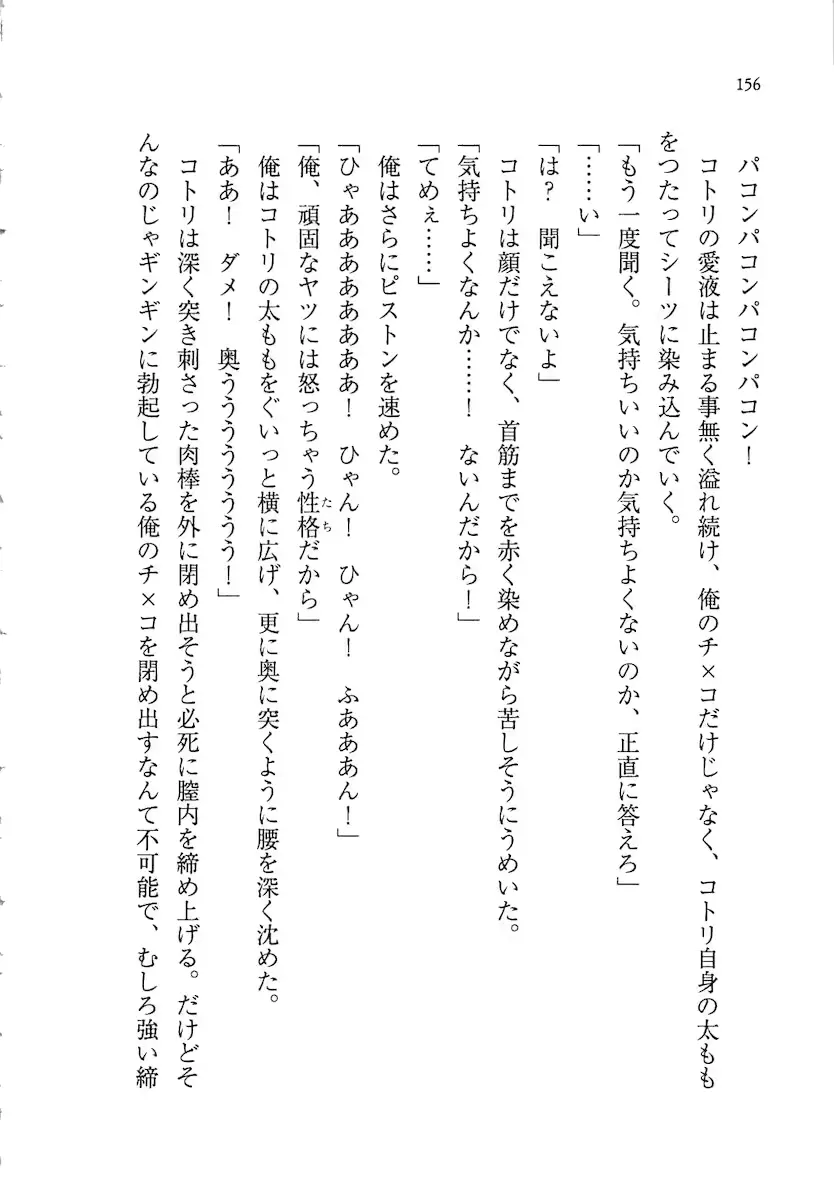 156
パコンパコンパコンパコン！
コトリの愛液は止まる事無く溢れ続け、俺のチ×コだけじゃなく、コトリ自身の太もも
をつたってシーツに染み込んでいく。
「もう一度聞く。気持ちいいのか気持ちよくないのか、正直に答えろ」
「……い」
「は？　聞こえないよ」
コトリは顔だけでなく、首筋までを赤く染めながら苦しそうにうめいた。
「気持ちよくなんか……！　ないんだから！」
「てめぇ……」
俺はさらにピストンを速めた。
「ひゃあああああああ！　ひゃん！　ひゃん！　ふあああん！」
「俺、頑固なヤツには怒っちゃう性格だから」
たち
俺はコトリの太ももをぐいっと横に広げ、更に奥に突くように腰を深く沈めた。
「ああ！　ダメ！　奥うううううううう！」
コトリは深く突き刺さった肉棒を外に閉め出そうと必死に膣内を締め上げる。だけどそ
んなのじゃギンギンに勃起している俺のチ×コを閉め出すなんて不可能で、むしろ強い締